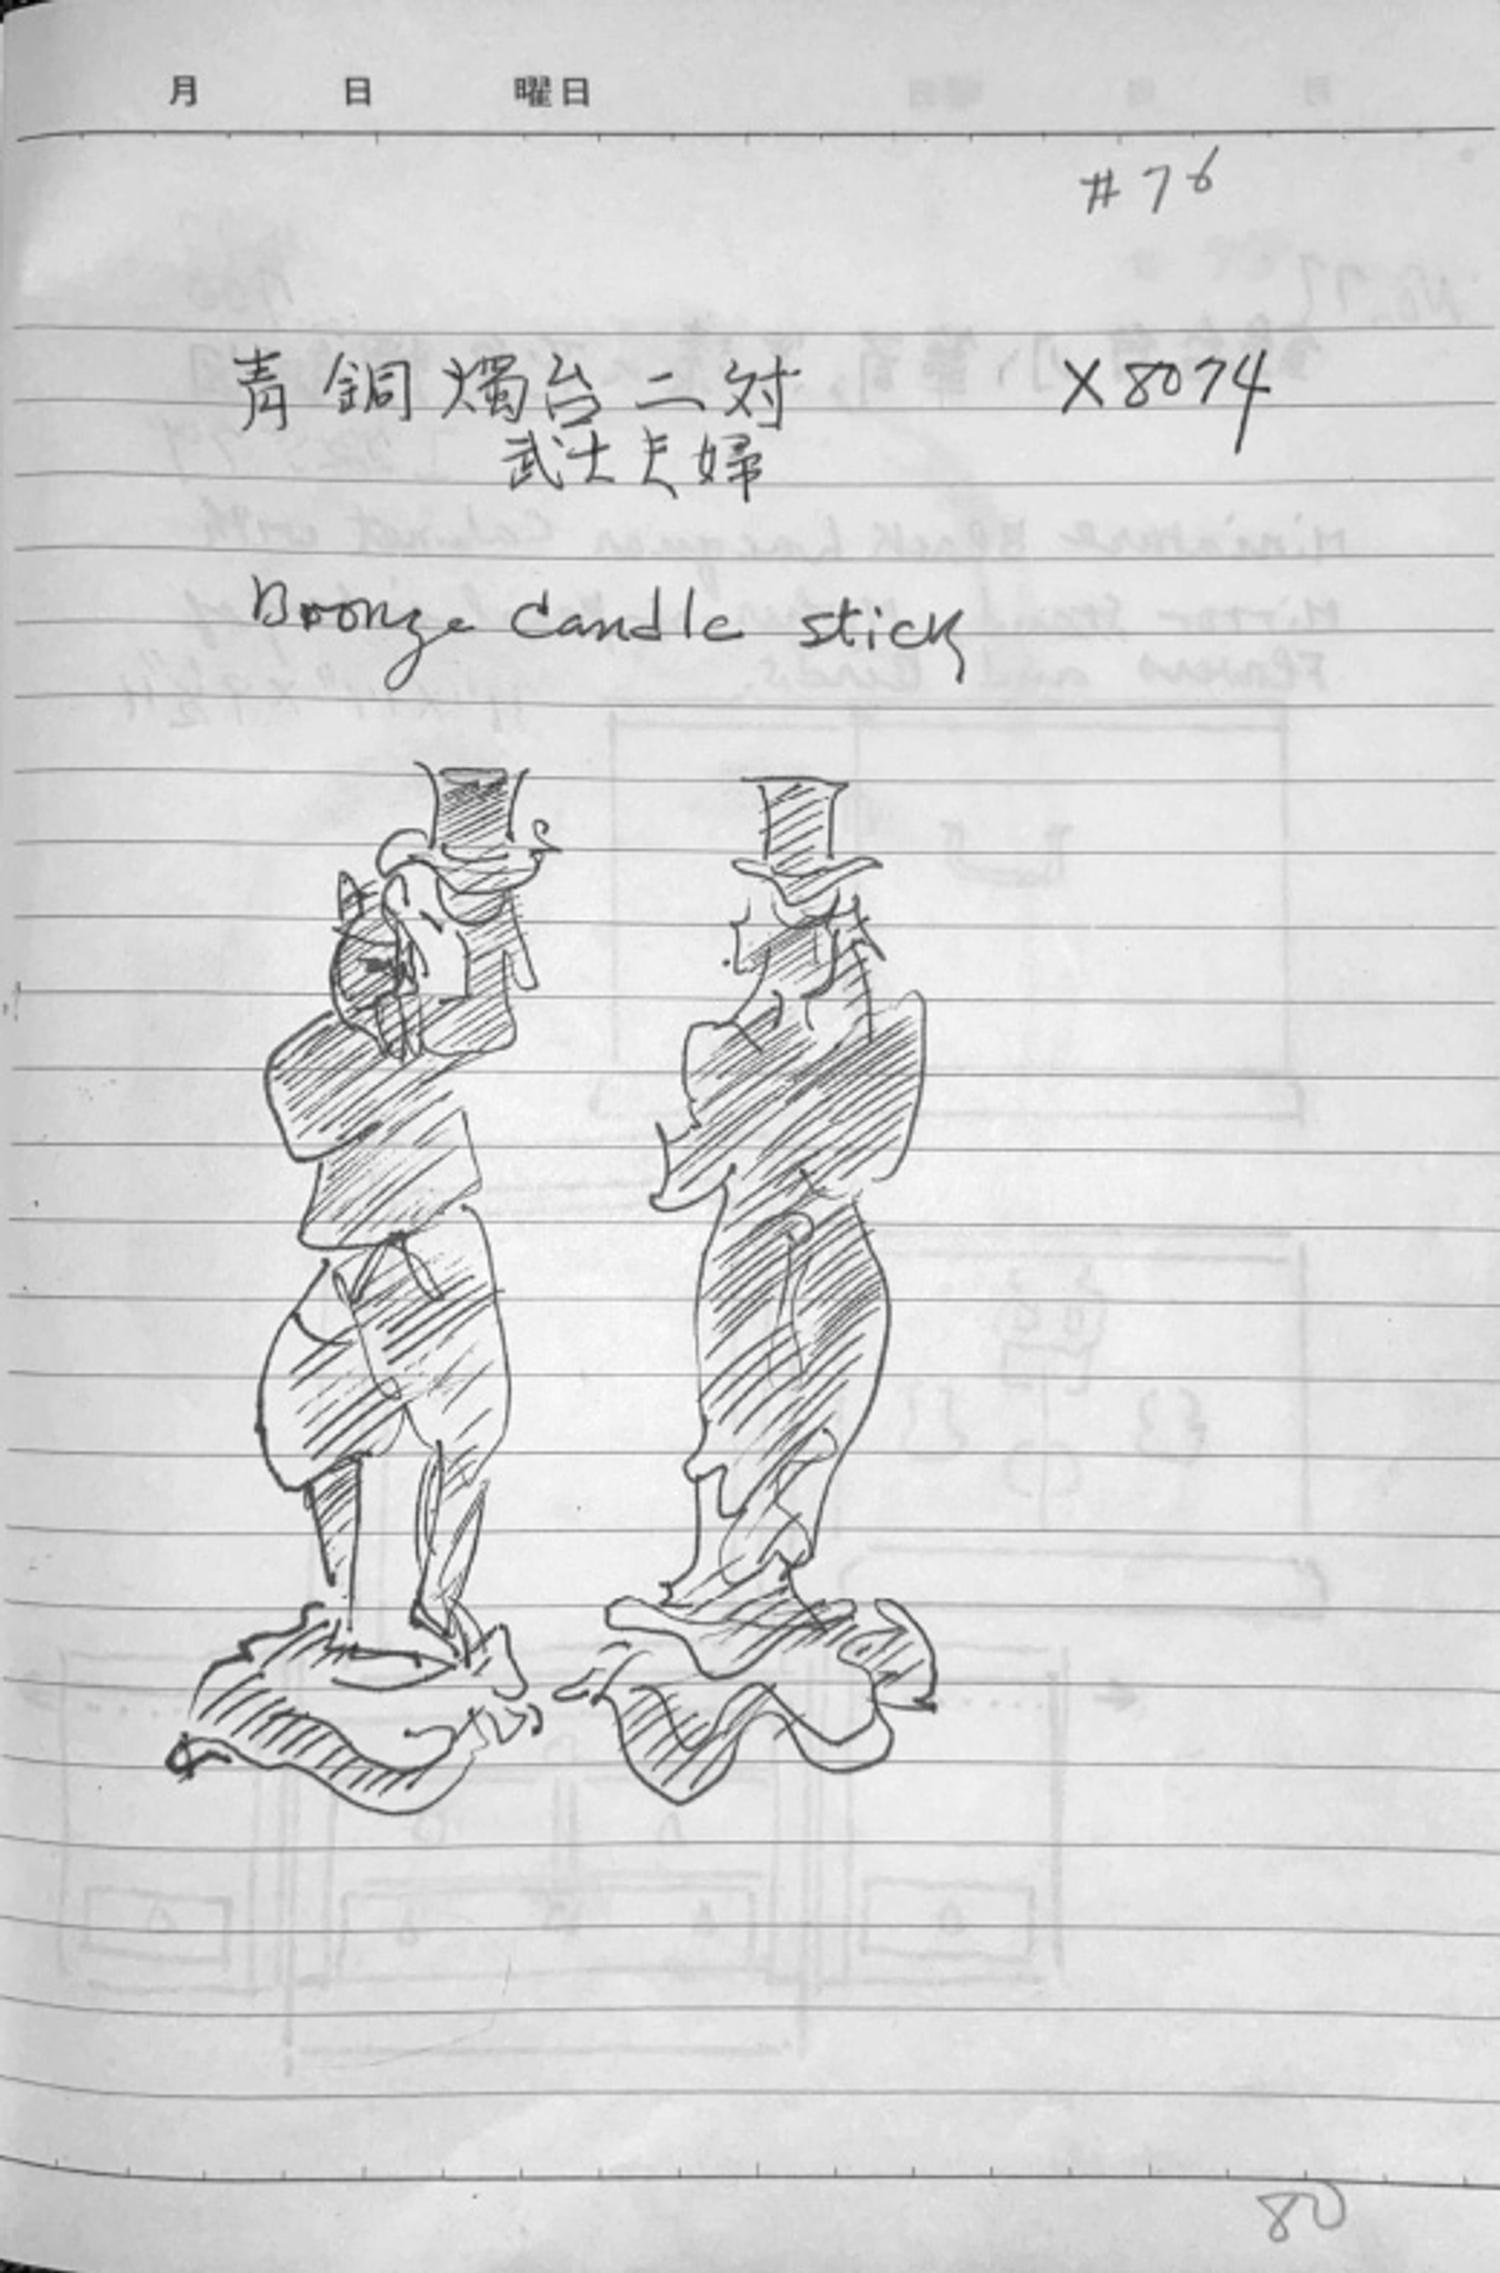 月 日 曜日
#76
青銅燭台二対 X8074
武士夫婦
Bronze Candle stick
80